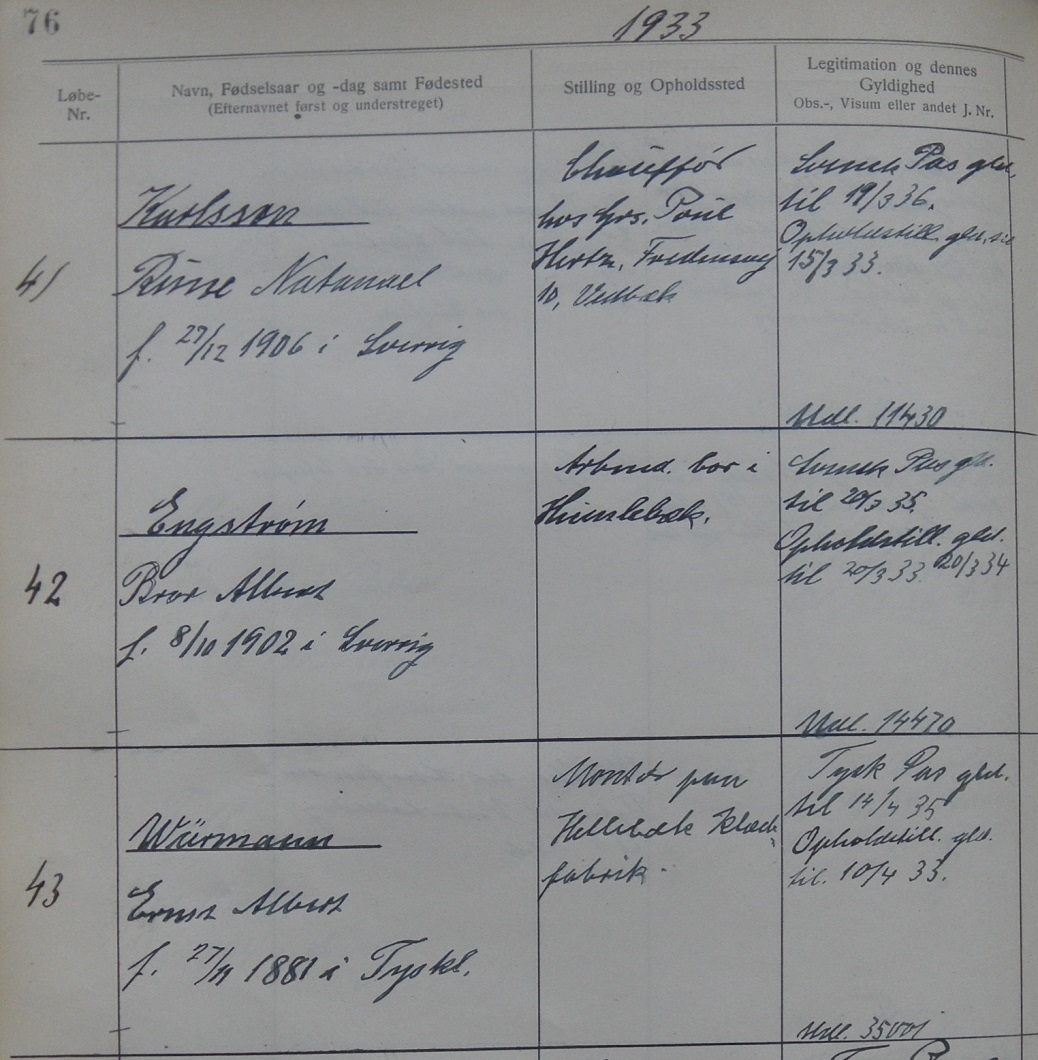 76
1933
Løbe-
Nr.
Navn, Fødselsaar og -dag samt Fødested
(Efternavnet først og understreget)
Stilling og Opholdssted
Legitimation og dennes
Gyldighed
Obs.-, Visum eller andet J. Nr.
41
Karlsson
Rune Natanael
f. 27/12 1906 i Sverrig
Chauffør
hos Grs. Poul
Hertz, Fredensvej
10, Vedbæk
Svensk Pas gld.
til 19/3 36.
Opholdstill. gld. til
15/3 33.
Udl. 11430
42
Engstrøm
Bror Albert
f. 8/10 1902 i Sverrig
Arbmd. bor i
Humlebæk.
Svensk Pas gld.
til 20/3 35.
Opholdstill. gld.
til 20/3 33. 20/3 34
Udl. 14470
43
Würmann
Ernst Albert
f. 27/11 1881 i Tyskl.
Montør paa
Hellebæk Klæde
fabrik.
Tysk Pas gld.
til 14/4 35
Opholdstill. gld.
til. 10/4 33.
Udl. 35001